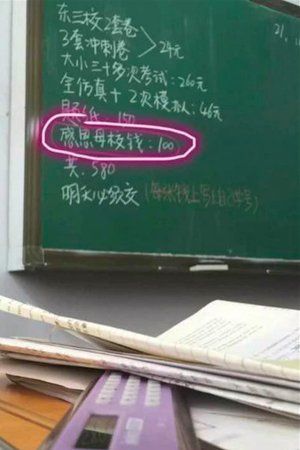 东三校2套卷
3套冲刺卷 >24元
大小三十多次考试:260元
全仿真+2次模拟:46元
题纸:150
感恩母校钱:100
共:580
明天必须交(每张钱上写上自己学号)
21,